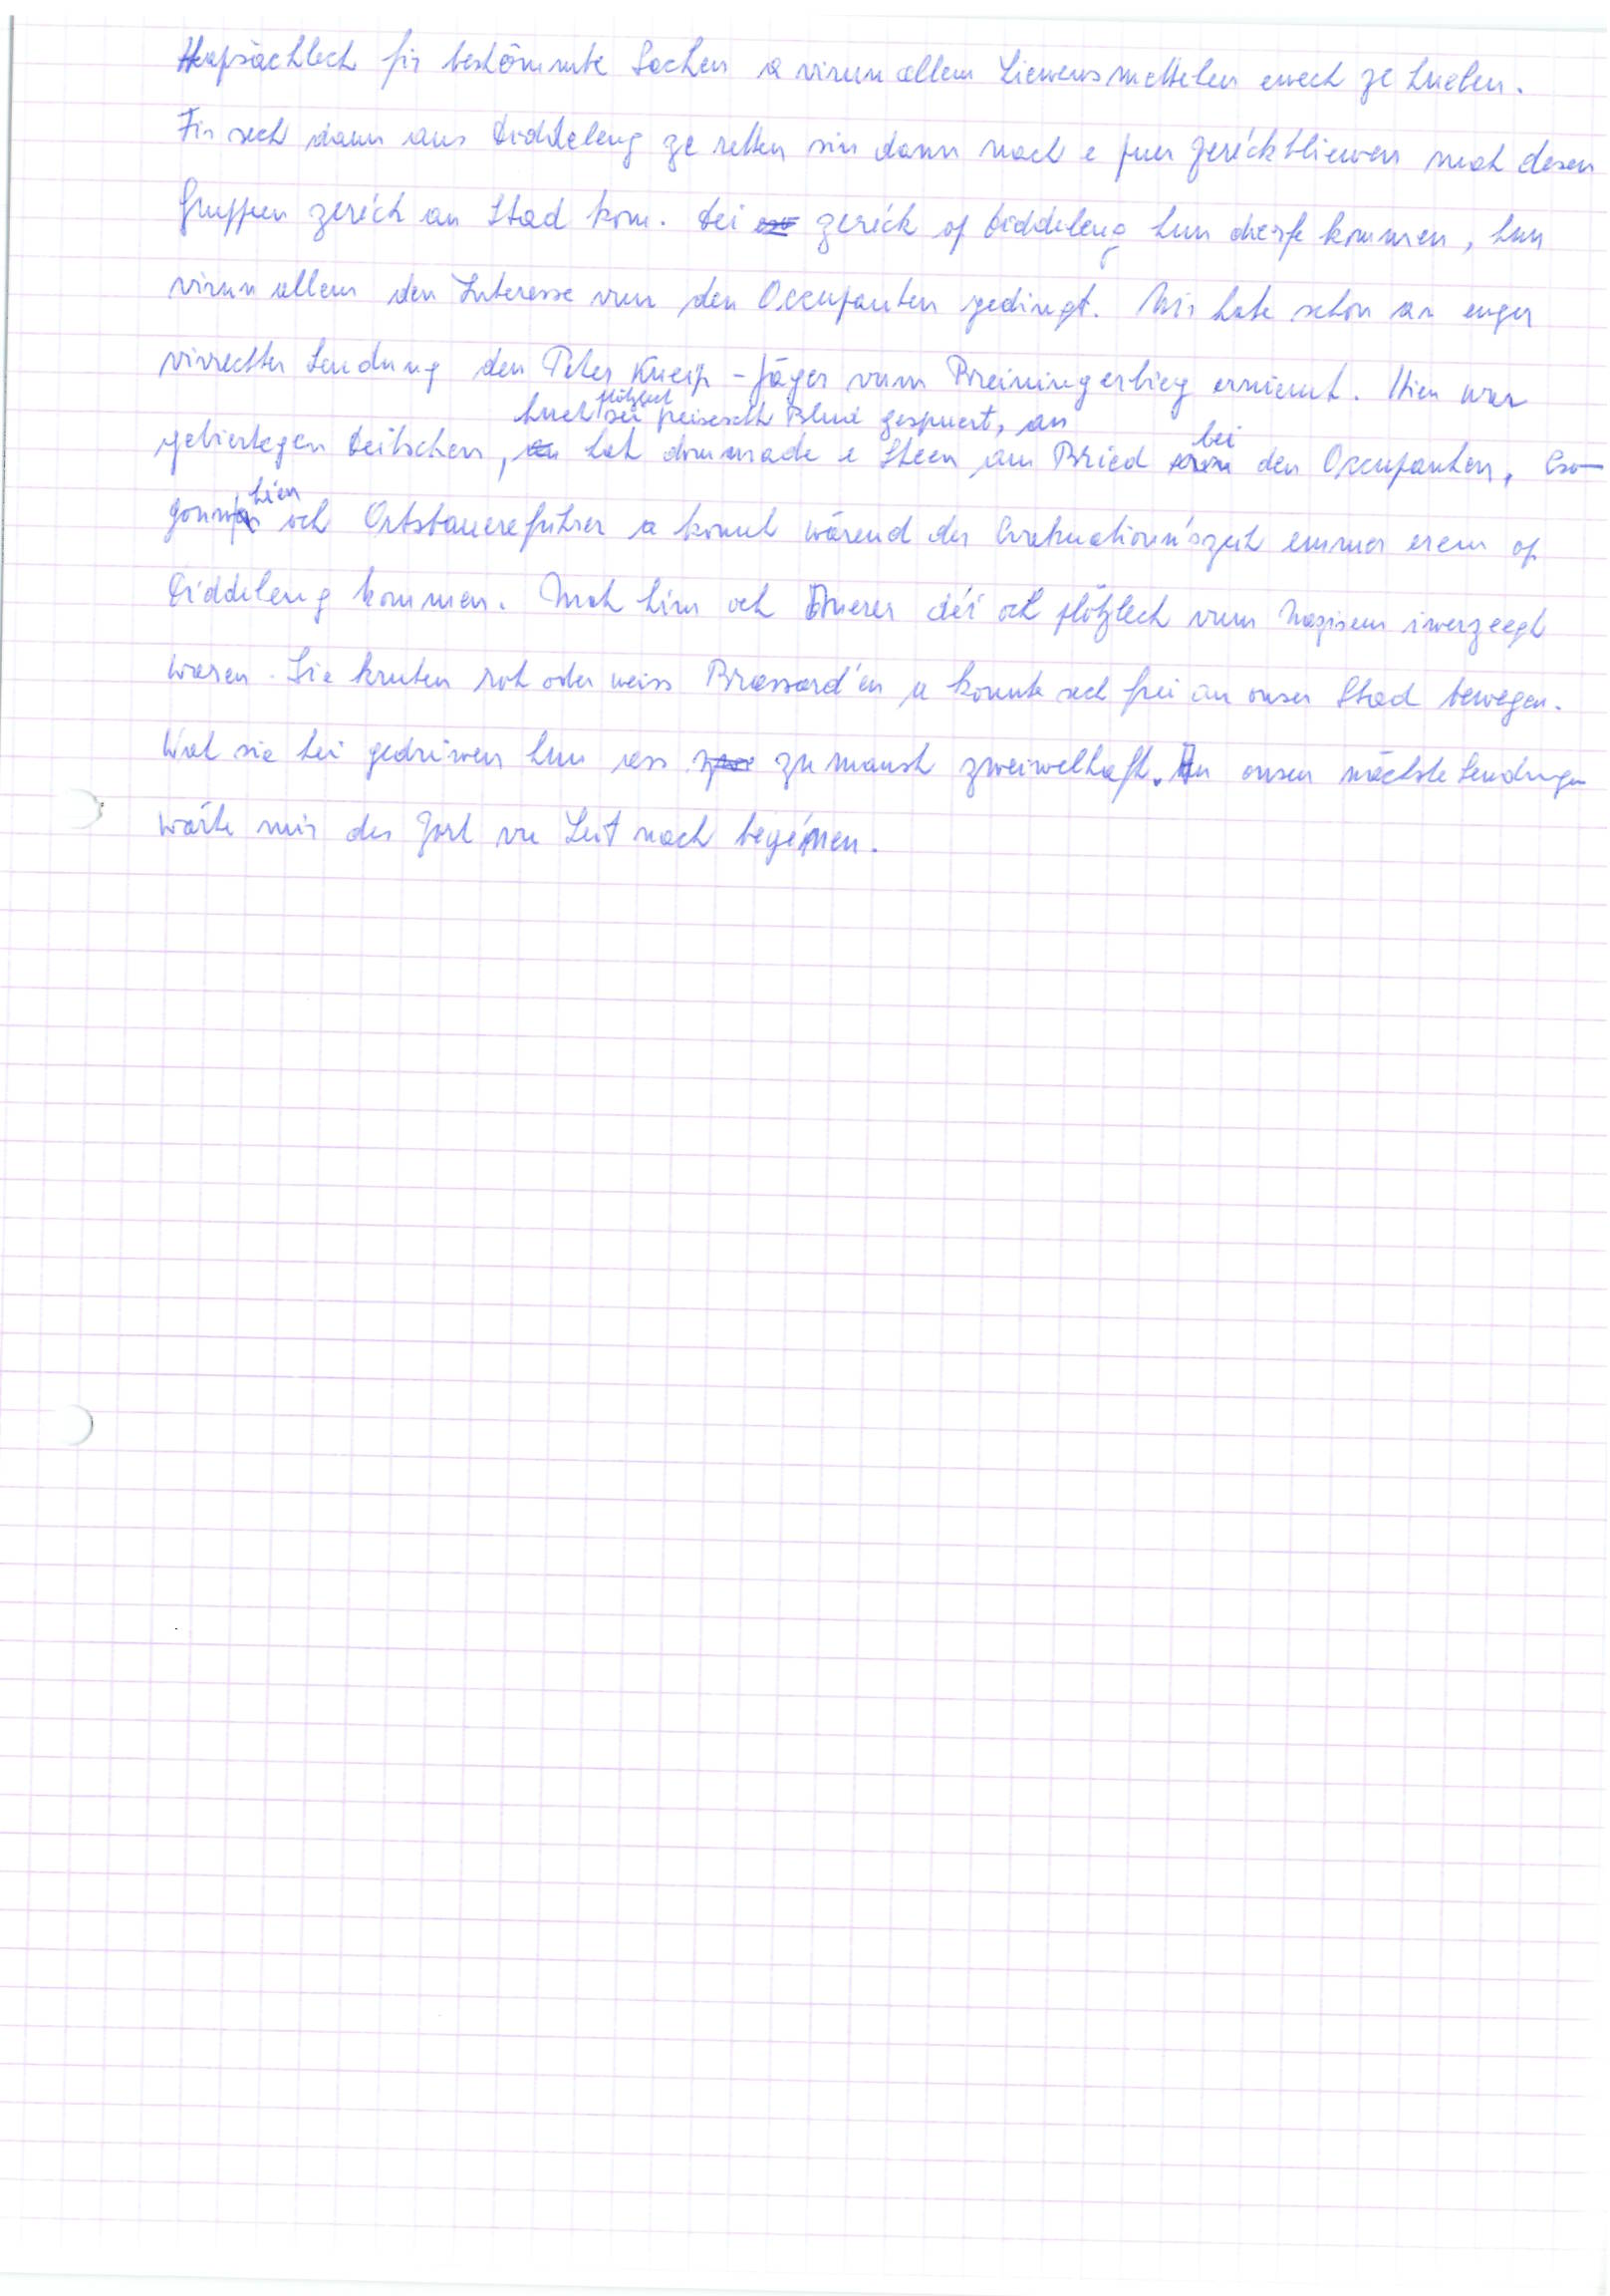 Haaptsächlech fir bestömmte Sachen a virun allem Liewensmettelen ewech ze huelen.
Fir sech dann aus Diddeleng ze retten sin dann nach e puer zeréckbliewen mat desen
Gruppen zeréck an Stad kom. Déi zeréck op Diddeleng hun dierfe kommen, hun
virun allem den Interesse vun den Occupanten gedingt. Mir hate schon an enger
viirechter Sendung den Peter Kneip-Jäger vum Breiningerbierg erniemt. Hien war
gebiertegen Deitschen, huet plötzlech sei preisescht Blud gespuert, an hat dommade e Steen am Briet bei den Occupanten. Eso
gouf hien och Ortsbauereführer a konnt wärend der Evakuatioun'szeit emmer erem op
Diddeleng kommen. Mat him och Anerer déi och plötzlech vum Nazisem iwerzeegt
waren. Sie kruten rot oder weiss Brassard'en a konnte sech frei an onser Stad bewegen.
Wat sie hei gedriwen hun ass zumanst zweiwelhaft. An onsen nächste Sendungen
wäerte mir der Zort vu Leit nach begéinen.